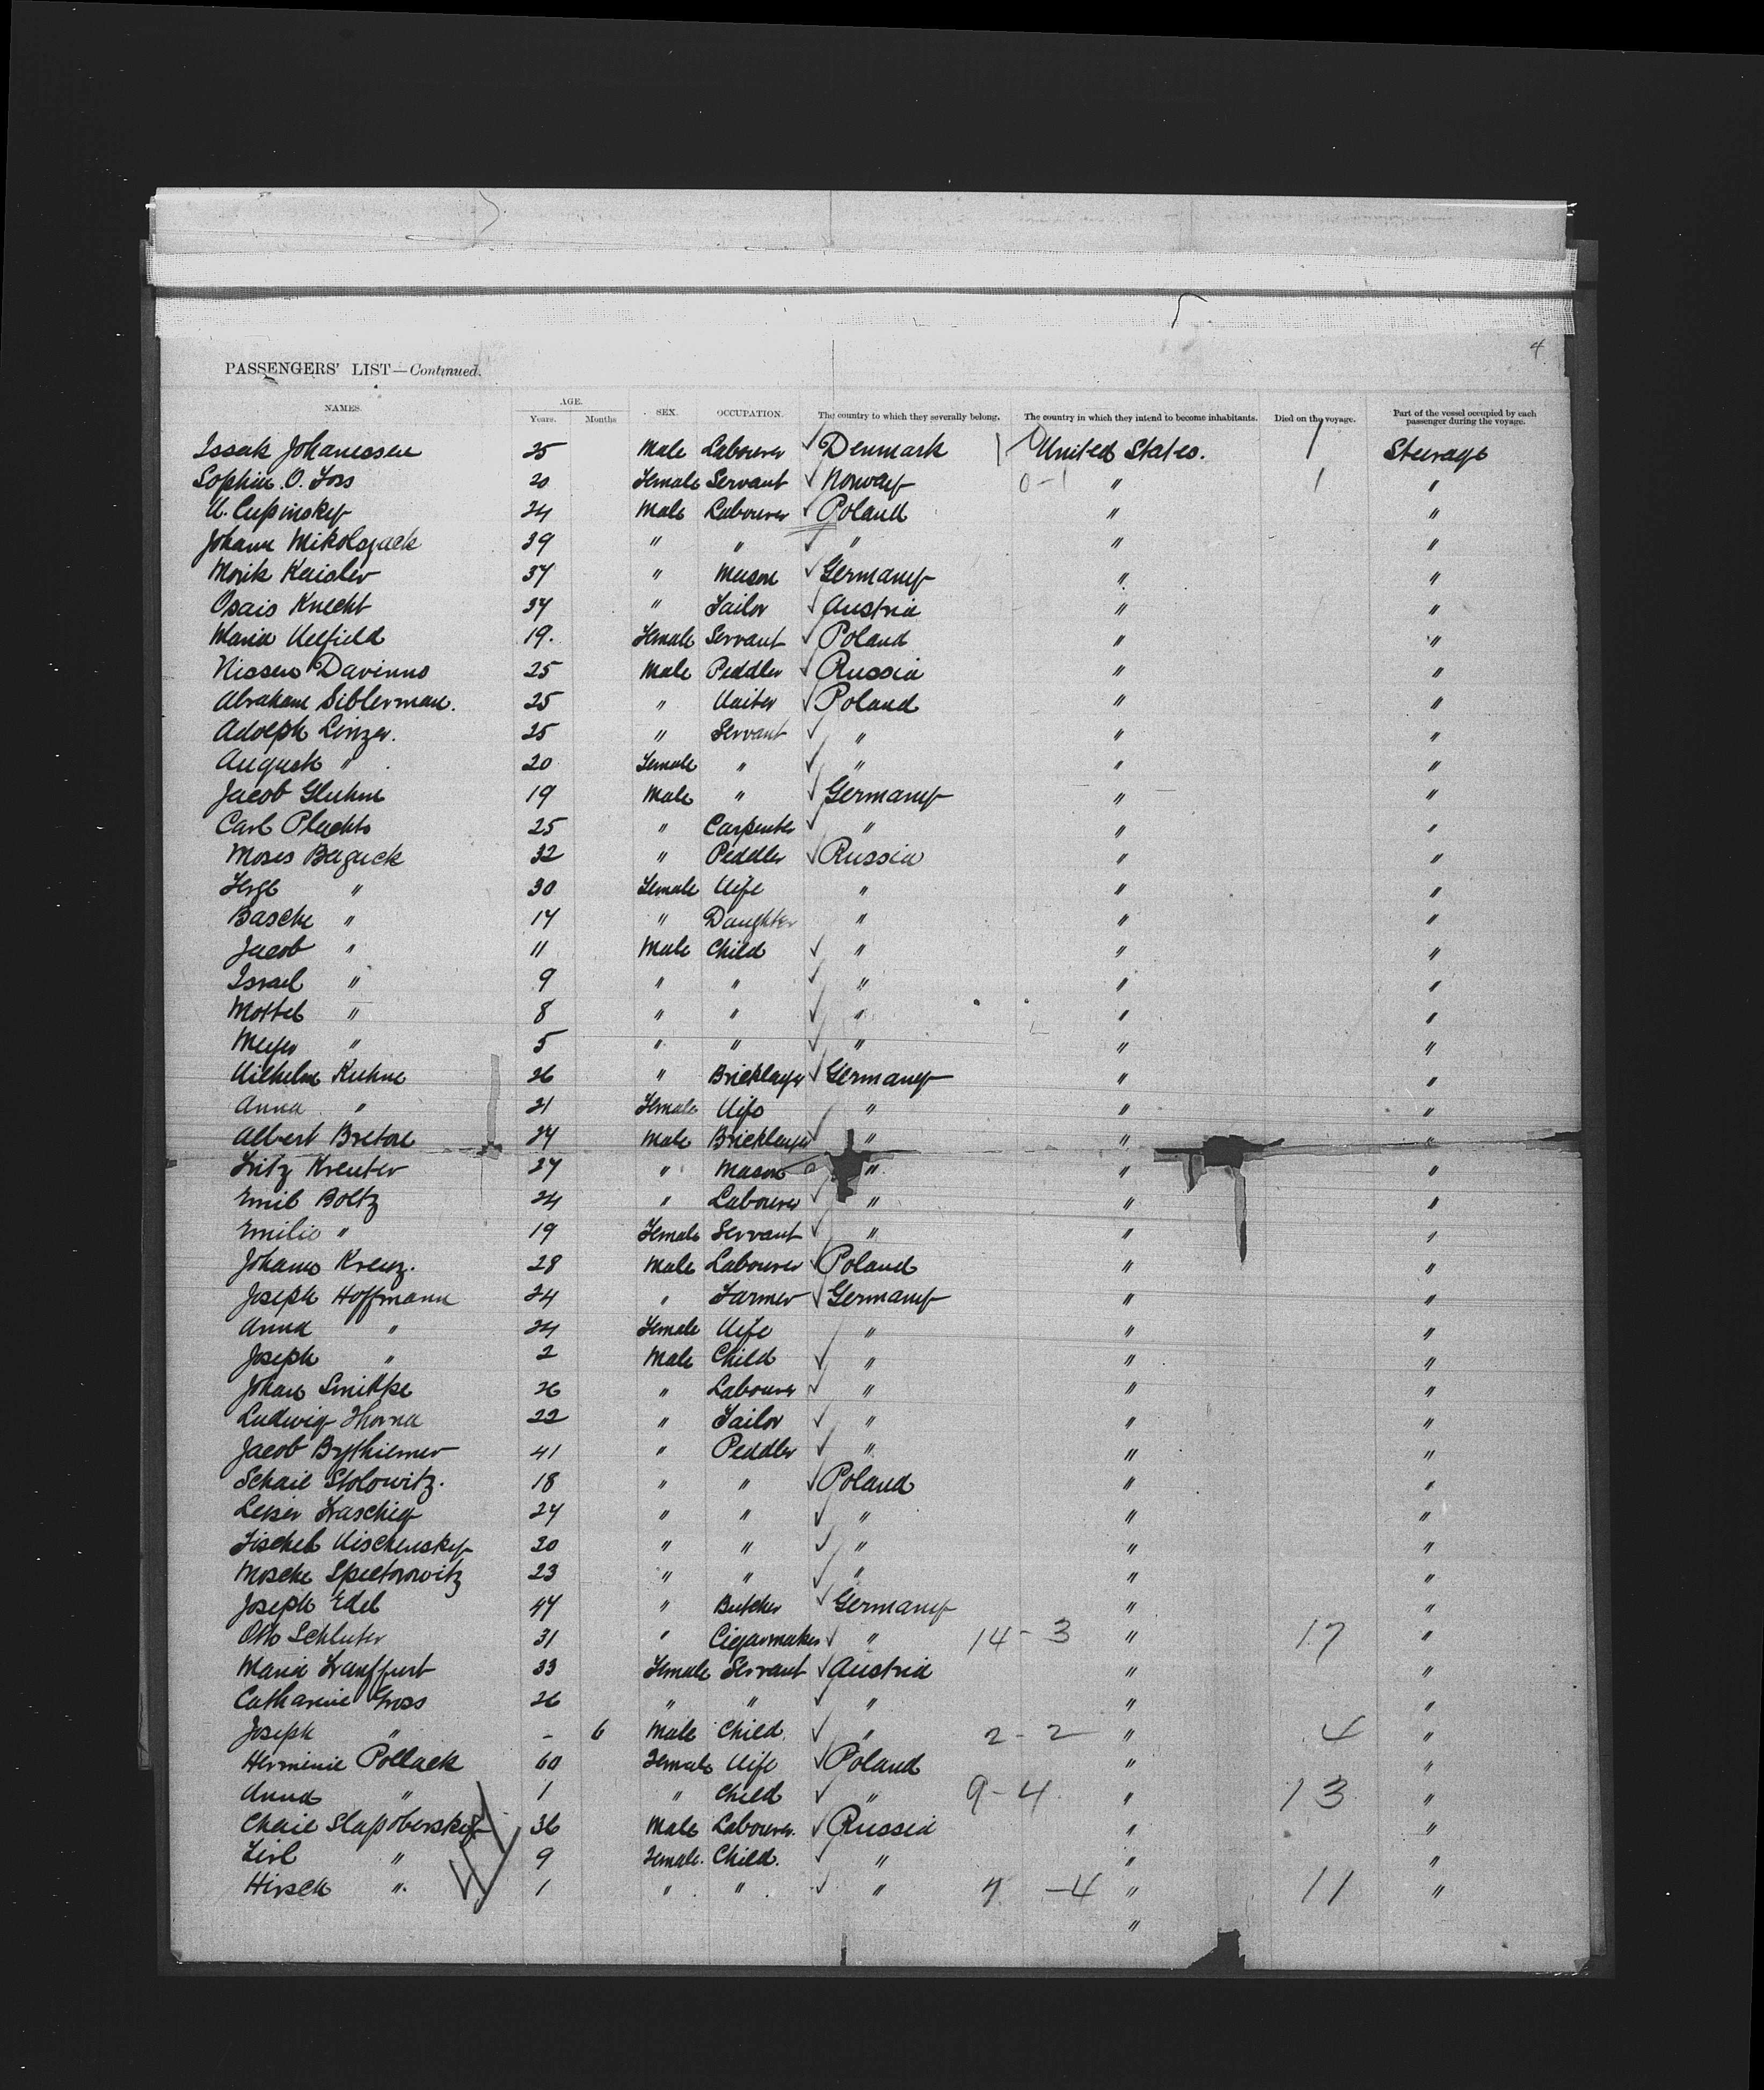 4
PASSENGERS' LIST—Continued.
NAMES. AGE. Years. Months SEX. OCCUPATION. The country to which they severally belong. The country in which they intend to become inhabitants. Died on the voyage. Part of the vessel occupied by each passenger during the voyage.
Issak Johanessen 25 Male Labourer ✓ Denmark 1 United States. 1 Steerage
Sophie O. Foss 20 Female Servant ✓ Norway 0-1 " 1 "
U. Cupinsky 24 Male Labourer ✓ Poland " "
Johann Mikolajack 39 " " ✓ " " "
Morik Kaisler 37 " Mason ✓ Germany " "
Osais Knecht 37 " Tailor ✓ Austria " "
Maria Uelfield 19. Female Servant ✓ Poland " "
Nissen Davinno 25 Male Peddler ✓ Russia " "
Abraham Siblerman. 25 " Waiter ✓ Poland " "
Adolph Linzer. 25 " Servant ✓ " " "
August " 20 Female " ✓ " " "
Jacob Gluhm 19 Male " ✓ Germany " "
Carl Plechto 25 " Carpenter ✓ " " "
Moses Baguck 32 " Peddler ✓ Russia " "
" 30 Female Wife " " "
Basche " 17 " Daughter " " "
Jacob " 11 Male Child ✓ " " "
Israel " 9 " " ✓ " " "
Mottel " 8 " " ✓ " " "
Meyer " 5 " " ✓ " " "
Wilhelm Kuhne 26 " Bricklayer ✓ Germany " "
Anna " 21 Female Wife " " "
Albert Bretore 27 Male Bricklayer ✓ " " "
Fritz Kreuter 27 " Mason " " "
Emil Boltz 24 " Labourer ✓ " " "
Emilie " 19 Female Servant ✓ " " "
Johann Kreuz. 28 Male Labourer ✓ Poland " "
Joseph Hoffmann 24 " Farmer ✓ Germany " "
Anna " 24 Female Wife " " "
Joseph " 2 Male Child ✓ " " "
Johan Smitke 26 " Labourer ✓ " " "
Ludwig Thorna 22 " Tailor ✓ " " "
Jacob Brythiemer 41 " Peddler ✓ " " "
Schaie Stolowitz. 18 " " ✓ Poland " "
Leiser Fraschig 27 " " ✓ " " "
Fischel Wischensky 20 " " ✓ " " "
Mosche Spectorowitz 23 " " ✓ " " "
Joseph Edel 47 " Butcher ✓ Germany " "
Otto Schluter 31 " Cigarmaker ✓ " 14-3 " 17 "
Maria Frauffurt 33 Female Servant ✓ Austria " "
Catharine Gross 26 " " ✓ " " "
Joseph " - 6 Male Child. ✓ " 2-2 " 4 "
Herminie Pollack 60 Female Wife ✓ Poland " "
Anna " 1 " Child ✓ " 9-4 " 13 "
Chaie Slapoberskey 36 Male Labourer. ✓ Russia " "
Lirl " 9 Female. Child. ✓ " " "
Hirsch " 1 " " ✓ " 7 -4 " 11 "
"